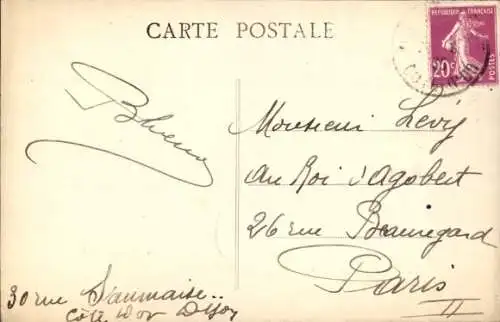 CARTE POSTALE
REPUBLIQUE FRANÇAISE
20c
POSTES
Monsieur Lévy
Au Roi d'Agobert
26 rue Beauregard
Paris
II
30 rue Saumaise..
Côte d'or Dijon